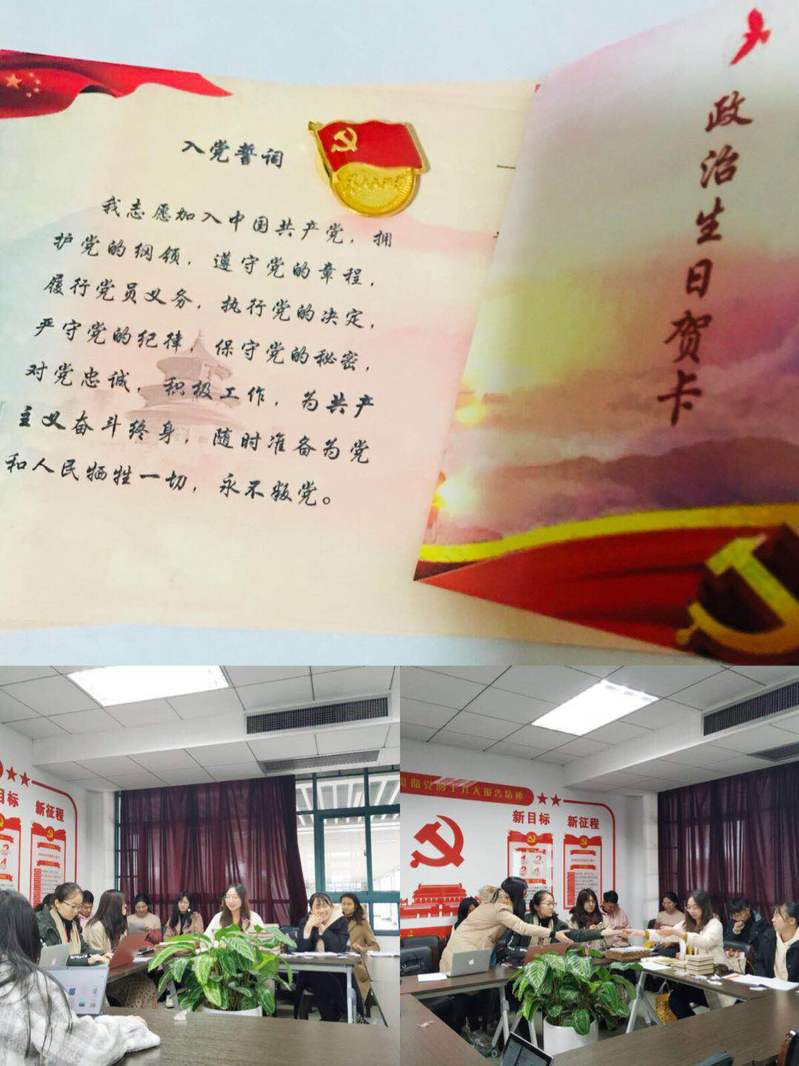 入党誓词
我志愿加入中国共产党，拥
护党的纲领，遵守党的章程，
履行党员义务，执行党的决定，
严守党的纪律，保守党的秘密，
对党忠诚，积极工作，为共产
主义奋斗终身，随时准备为党
和人民牺牲一切，永不叛党。
政治生日贺卡
目标
新征程
彻党的十九大报告精神
新目标
新征程